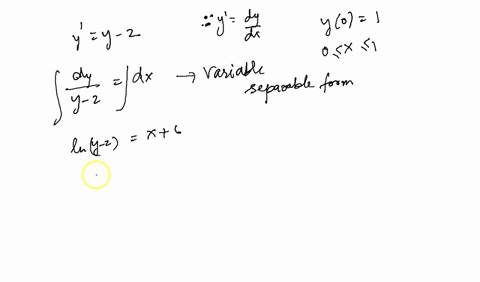 y' = y - 2
∵ y' = dy/dx
y(0) = 1
0 ≤ x ≤ 1
∫ dy/(y-2) = ∫ dx → Variable
separable form
ln(y-2) = x + c